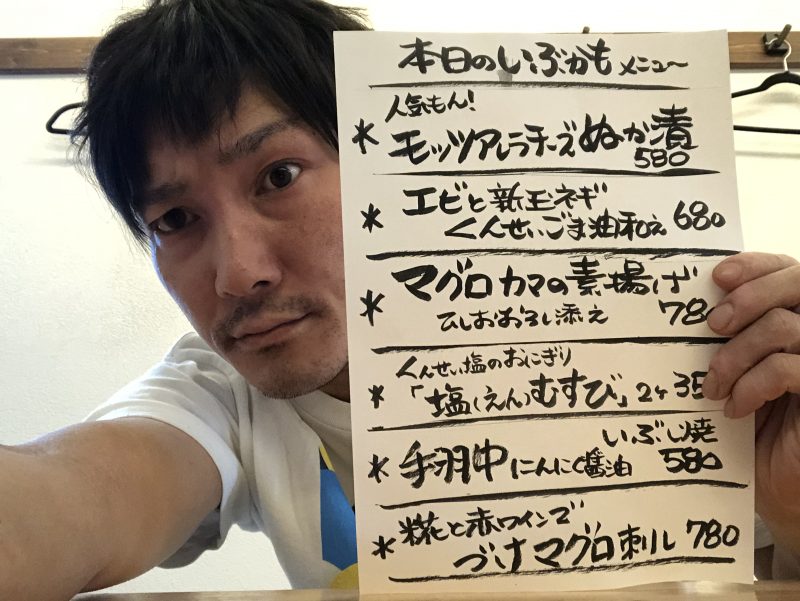 本日のいぶかもメニュー
人気もん!
* モッツアレラチーズぬか漬
580
* エビと新玉ネギ
くんせいごま油和え 680
* マグロカマの素揚げ
ひしおおろし添え 780
くんせい塩のおにぎり
* 「塩(えん)むすび」2ケ 35
いぶし焼
* 手羽中にんにく醤油 580
* 糀と赤ワインで
づけマグロ刺し 780